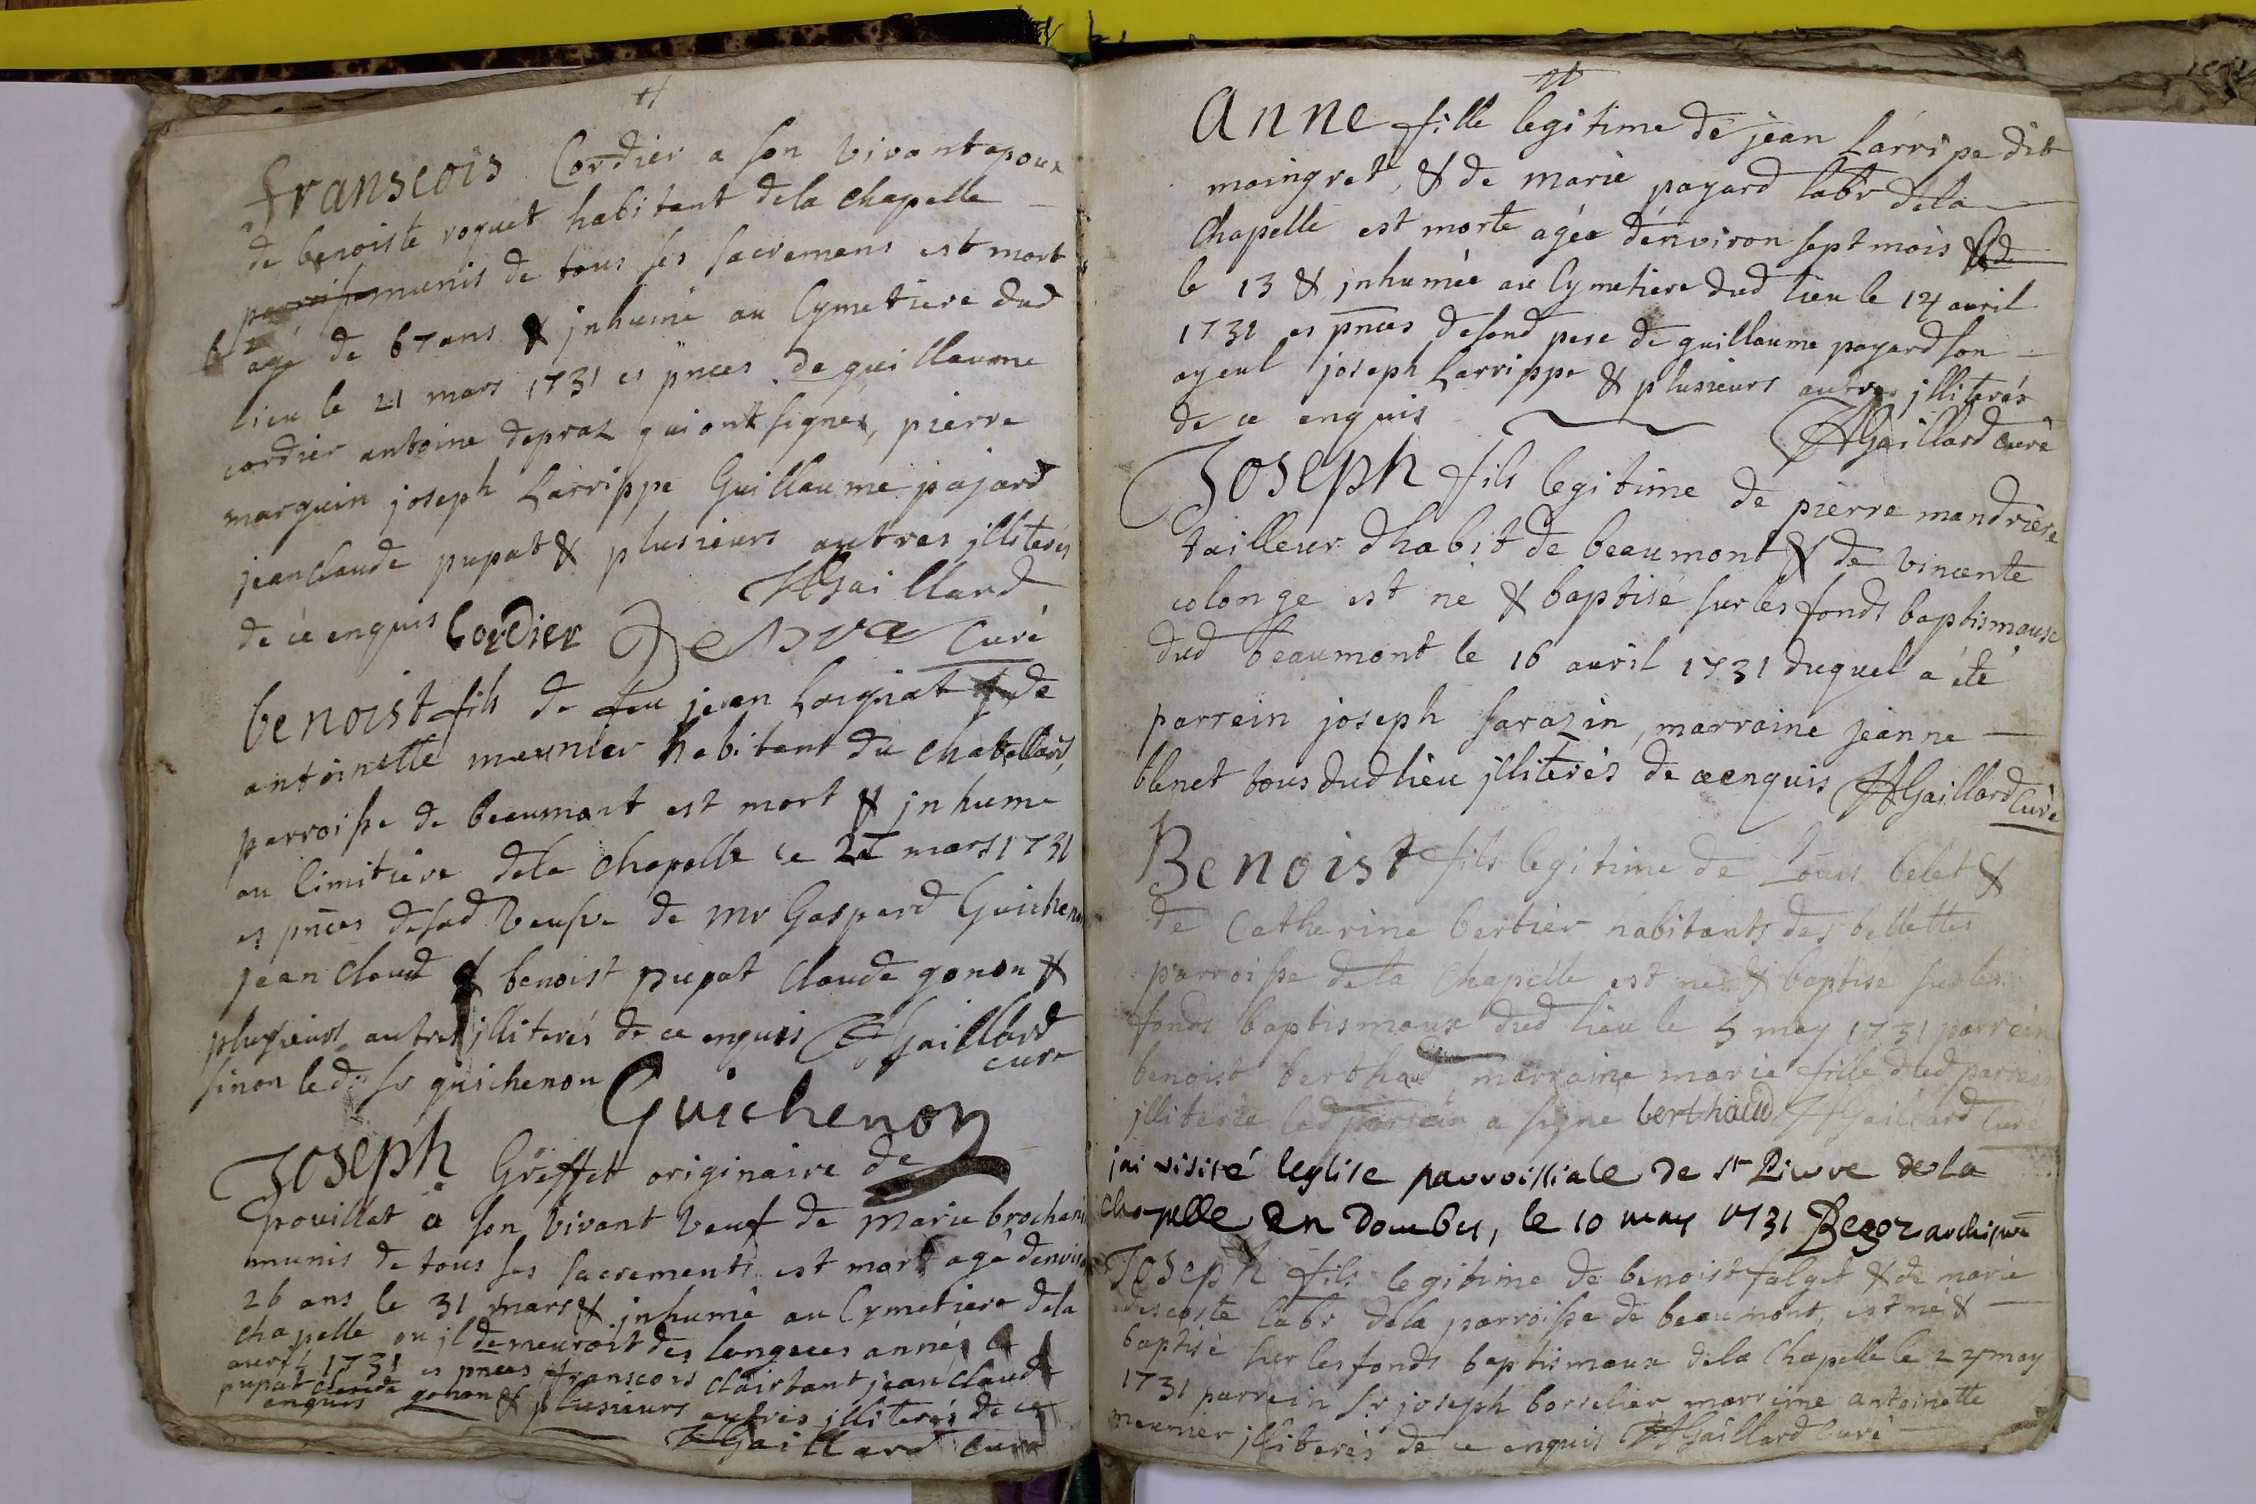 franscois Cordier a son vivant epoux
de benoiste roguet habitant dela chapelle
munis de tous ses sacremens est mort
agé de 67 ans & jnhumé au Cymetiere dud
lieu le 21 mars 1731 es pnces de guillaume
cordier antoine depraz qui ont signés, pierre
marguin joseph Larrippe Guillaume pajard
jean claude pupat & plusieurs autres jlliterés
de ce enquis Cordier HGaillard
Curé
benoist fils de feu jean Loigniat & de
antoinette meunier habitant du chatellard,
parroisse de beaumont est mort & jnhumé
au Cimitiere dela chapelle le mars 1731
es pnces desad veufve de mr Gaspard Guichenon
jean claud & benoist pupat claude gonon &
plusieurs autres jlliterés de ce enquis HGaillard
curé
sinon led. sr guichenon Guichenon
Joseph Greffet originaire de
pouillat a son vivant veuf de marie brochand
munis de tous ses sacrements est mort agé denviron
26 ans le 31 mars & jnhumé au Cymetiere dela
chapelle ou jl demeuroit des longues années le
avril 1731 es pnces franscois clairtant jean claude
pupat claude gonon & plusieurs autres jlliterés de ce
enquis HGaillard Curé
Anne fille legitime de jean Larripe dit
maingret, & de marie payard labr dela
Chapelle est morte agée d'environ sept mois
le 13 & jnhumée au Cymetiere dud lieu le 14 avril
1731 es pnces desond pere de guillaume payard son
ayeul joseph Larrippe & plusieurs autres jlliterés
de ce enquis HGaillard Curé
Joseph fils legitime de pierre mandriere
tailleur dhabit de beaumont & de vincente
colonge est né & baptisé sur les fonds baptismaux
dud beaumont le 16 avril 1731 duquel a été
parrein joseph sarazin, marraine jeanne
blenet tous dud lieu jlliterés de ce enquis HGaillard Curé
Benoist fils legitime de Louis belet &
de Catherine bertier habitants des bellettes
parroisse dela Chapelle est né & baptisé sur les
fonds baptismaux dud lieu le 5 may 1731 parrein
benoist berthaud, marraine marie fille dud parrein
jlliterée led parrein a signé berthaud HGaillard Curé
jai visité leglise parroissiale de st Pierre de la
Chapelle en Dombes, le 10 may 1731
Joseph fils legitime de benoist falget & de marie
descoste labr dela parroisse de beaumont, est né &
baptisé sur les fonds baptismaux dela Chapelle le 24 may
1731 parrein sr joseph borselier marreine antoinette
meunier jlliterés de ce enquis HGaillard Curé